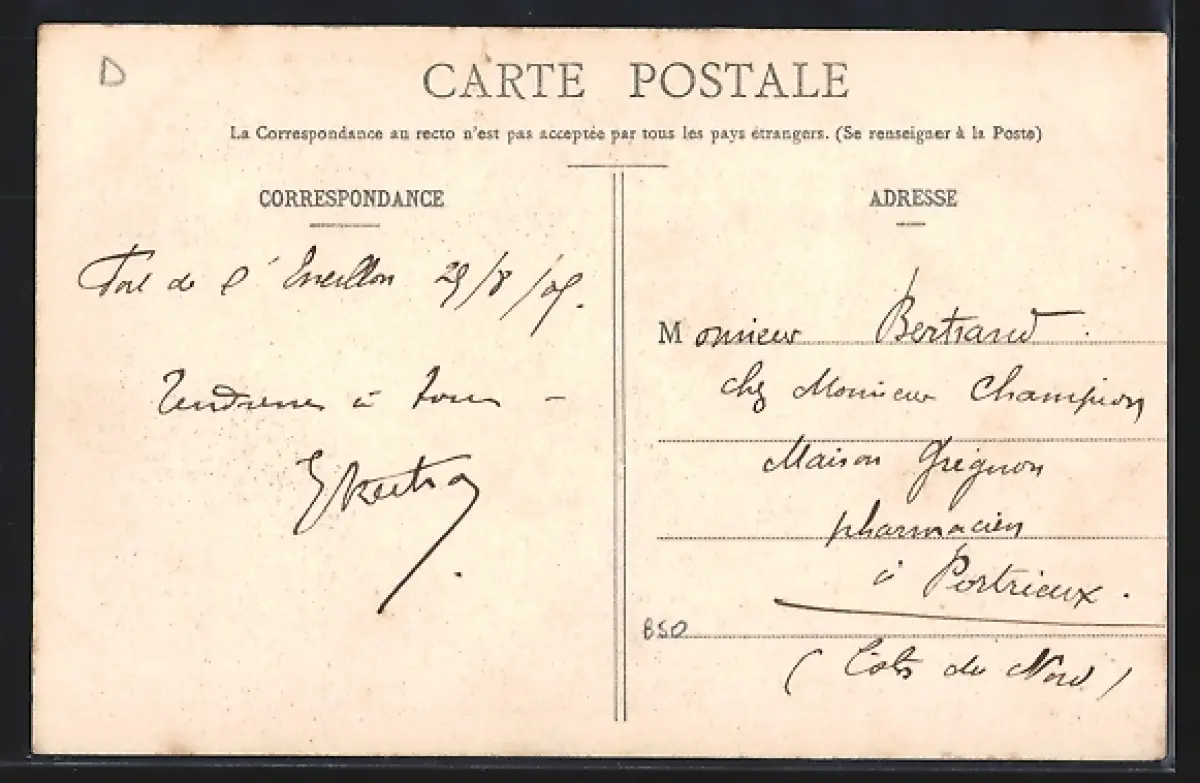 D
CARTE POSTALE
La Correspondance au recto n'est pas acceptée par tous les pays étrangers. (Se renseigner à la Poste)
CORRESPONDANCE
de l'
Tendresses à tous –
ADRESSE
Monsieur Bertrand.
chez Monsieur Champion
Maison Grégnon
pharmacien
à Portrieux.
BSO
(Côtes du Nord)